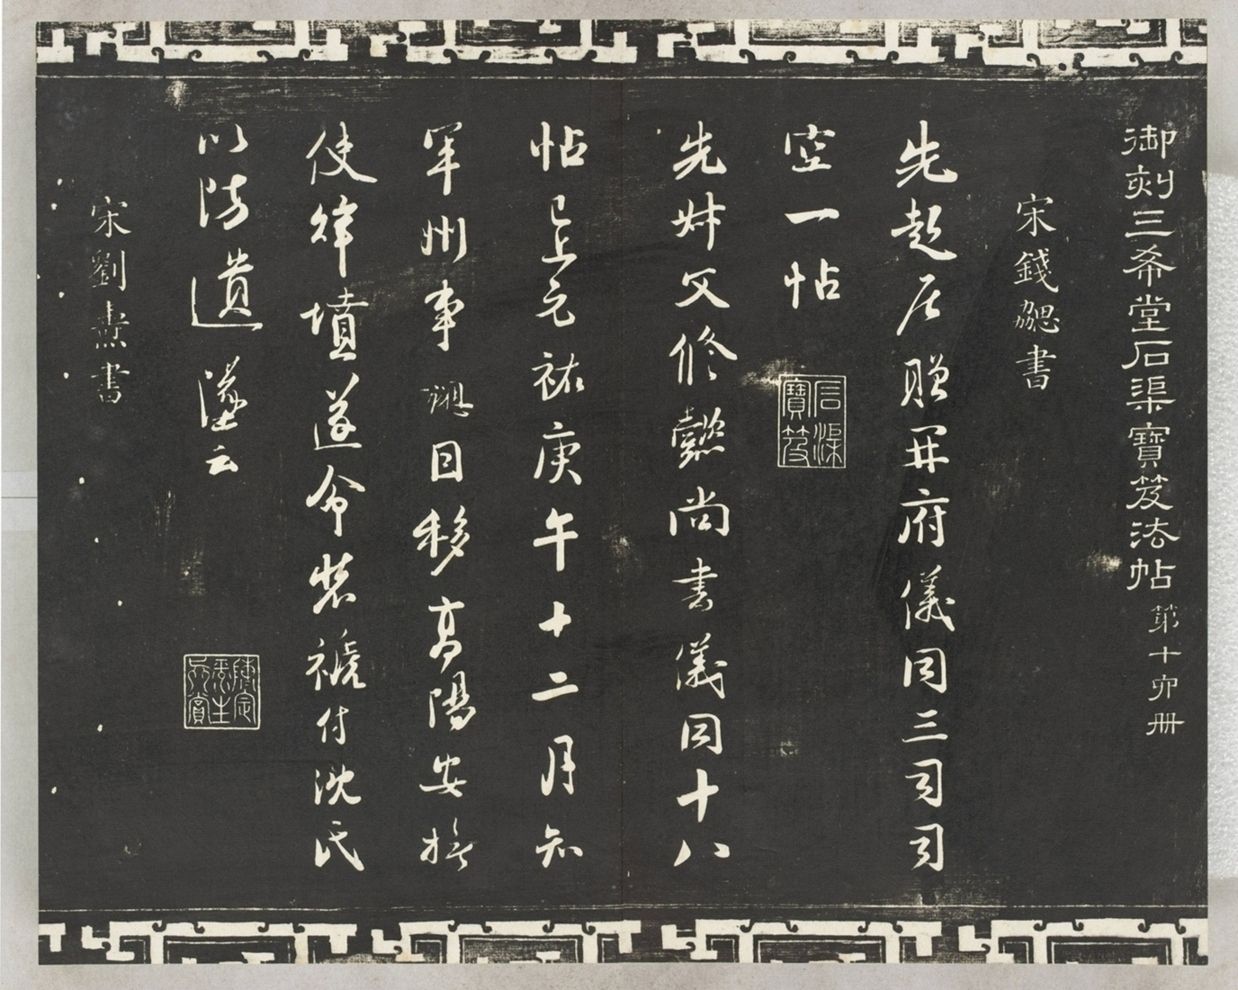 御刻三希堂石渠寶笈法帖 第十卯冊
宋錢勰書
先起居贈開府儀同三司司
空一帖
石渠寶笈
先叔父修懿尚書儀同十八
帖已上元祐庚午十二月知
軍州事勰目移高陽安撫
使拜墳遂令裝褫付沈氏
以防遺墜云
宋劉燾書